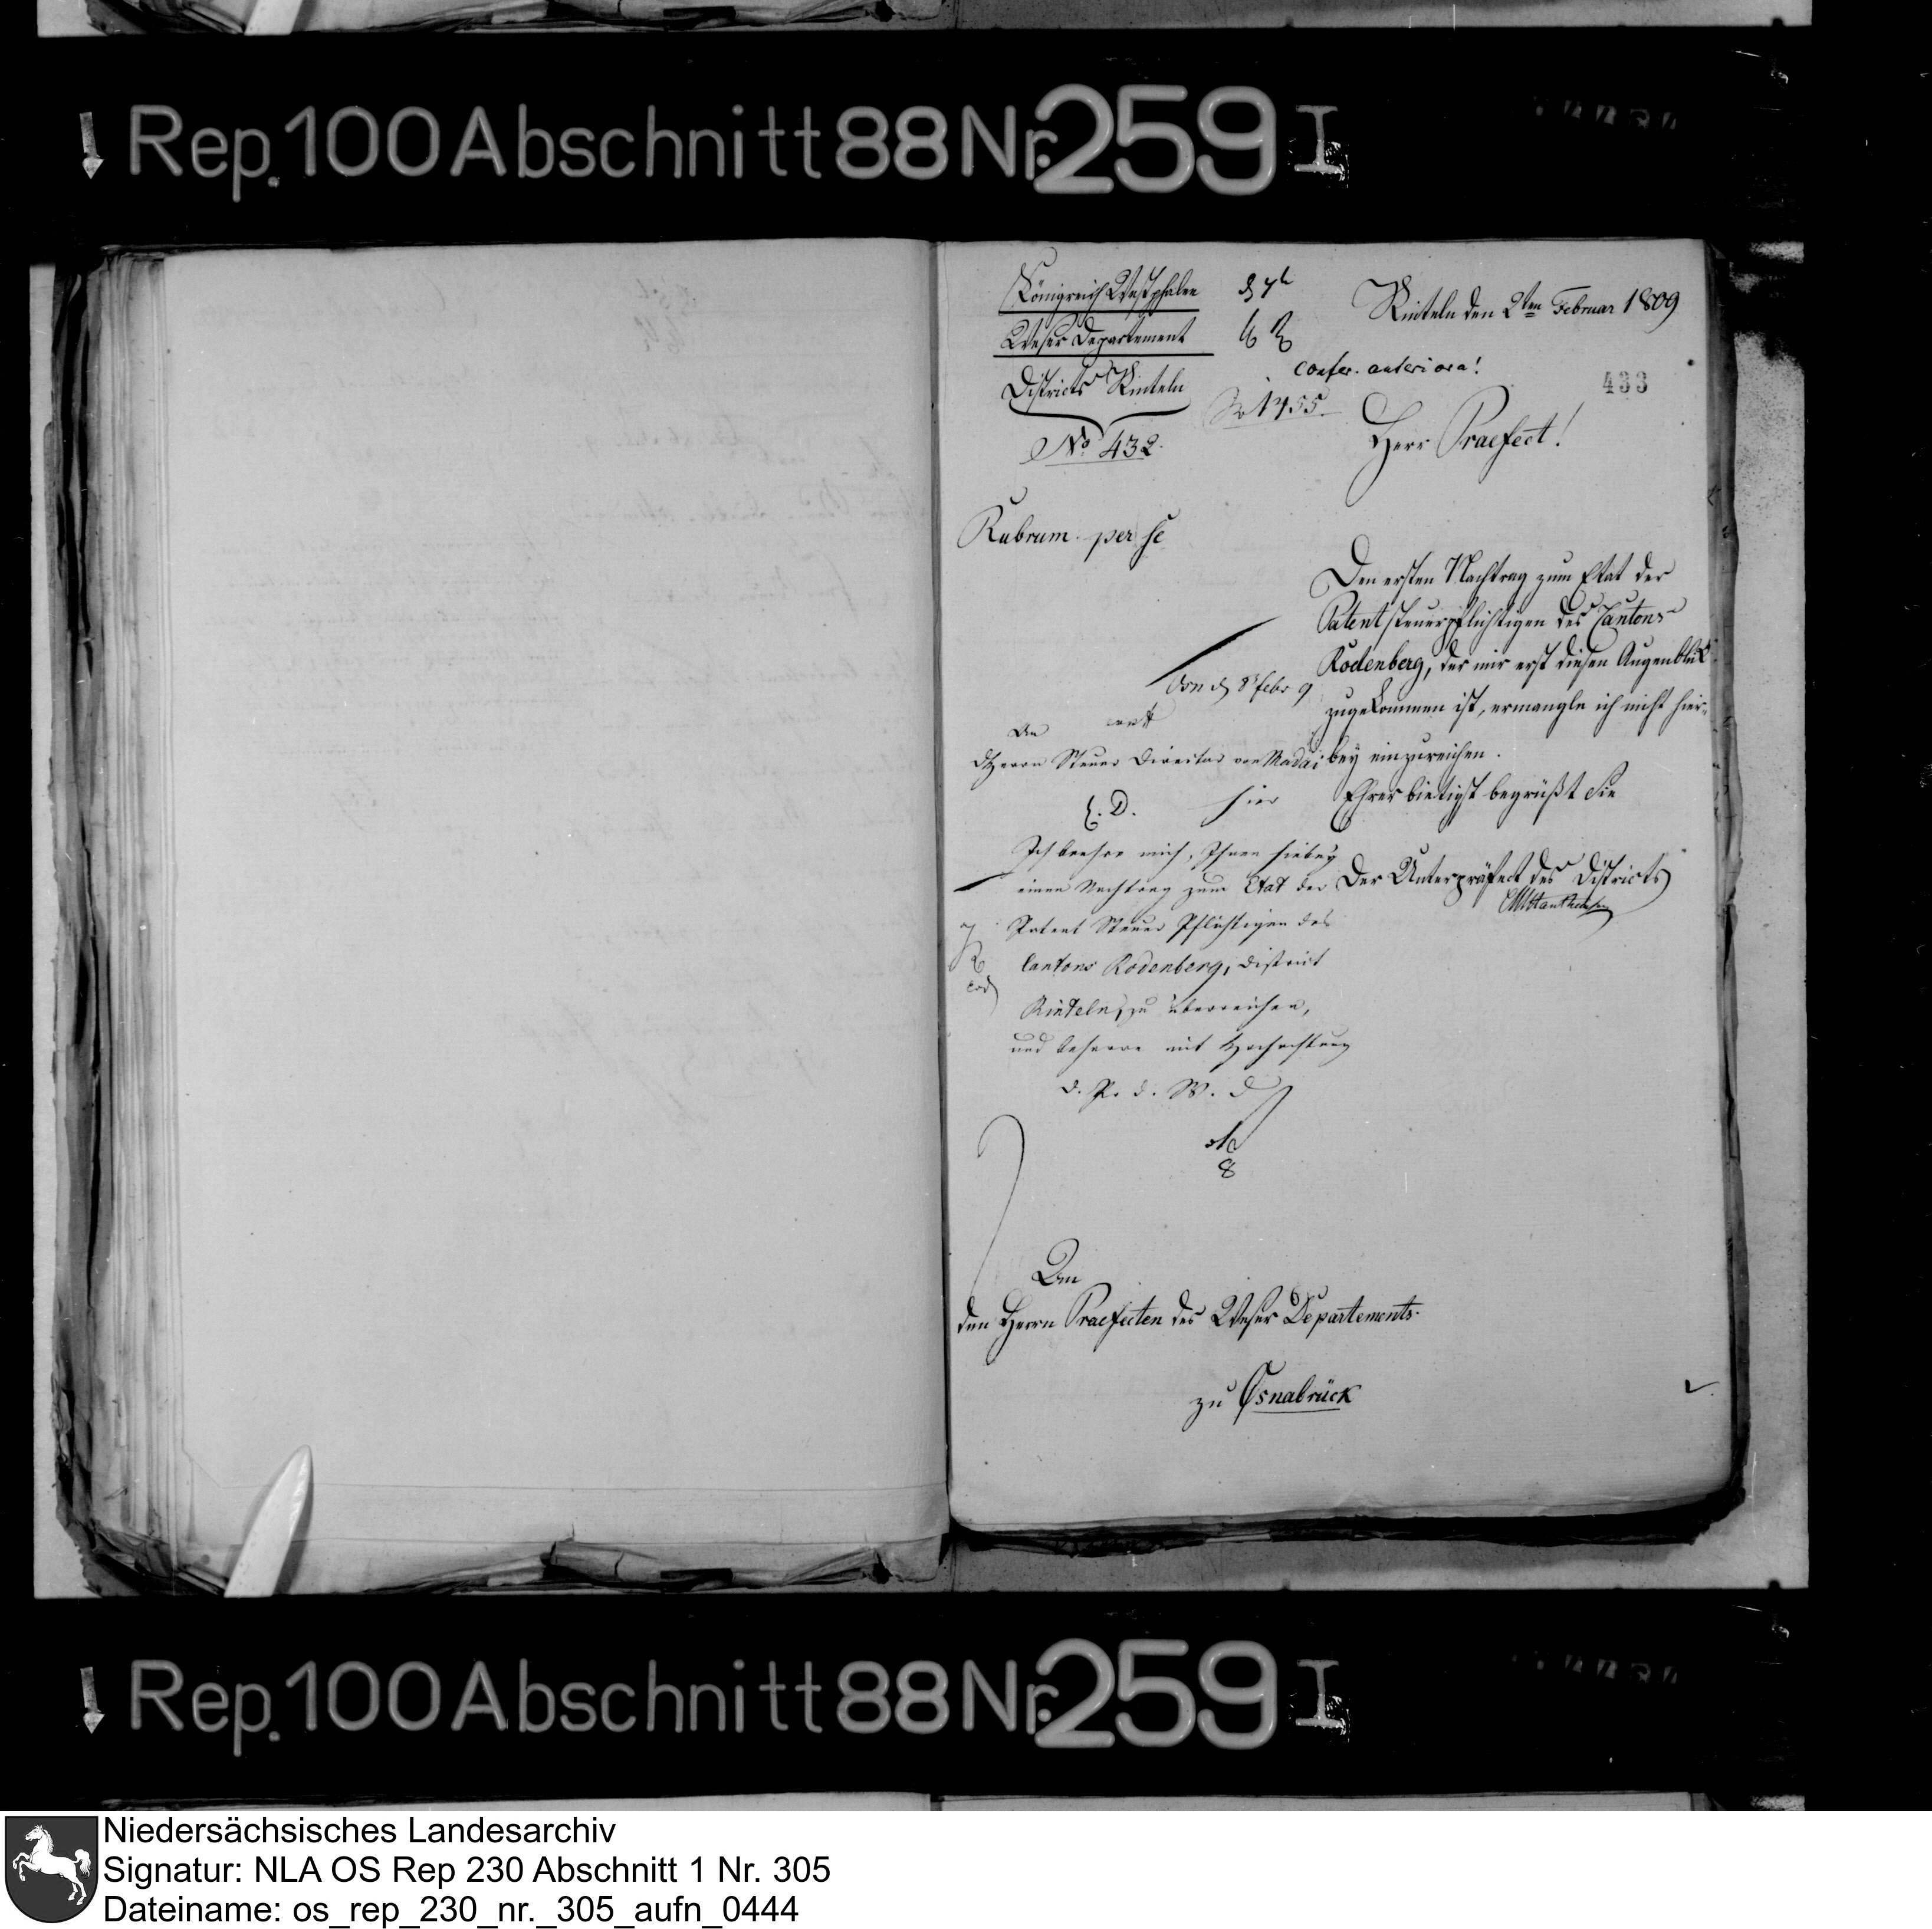 Rep. 100 Abschnitt 88 Nr. 259 I
Königreich Westphalen
Weser Departement
Districts Rinteln
No 432.
Rinteln den 2ten Februar 1809
confer. anteriora!
433
1455
Herr Praefect!
Rubrum per se
Den ersten Nachtrag zum Etat der
Patentsteuerpflichtigen des Cantons
Rodenberg, der mir erst diesen Augenblick
zugekommen ist, ermangle ich nicht hier-
bey einzureichen.
Ehrerbietigst begrüßt Sie
Der Unterpräfect des Districts
d 8 Febr 9
An
d Herrn Steuer Director von Madai
hier
E. D.
Ich beehre mich, Ihnen hiebey
einen Nachtrag zum Etat der
Patent Steuer Pflichtigen des
Cantons Rodenberg, District
Rinteln, zu überreichen,
und beharre mit Hochachtung
d. P. d. W. D
8
An
den Herrn Praefecten des Weser Departements.
zu Osnabrück
Rep. 100 Abschnitt 88 Nr. 259 I
Niedersächsisches Landesarchiv
Signatur: NLA OS Rep 230 Abschnitt 1 Nr. 305
Dateiname: os_rep_230_nr._305_aufn_0444